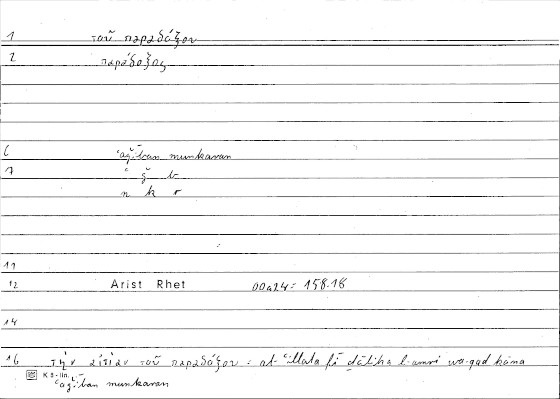 1 τοῦ παραδόξου
2 παράδοξος
6 ʿaǧīban munkaran
7 ʿ ǧ b
n k r
11
12 Arist Rhet 00a24 = 158.18
14
16 τὴν αἰτίαν τοῦ παραδόξου = al-ʿillata fī ḏālika l-amri wa-qad kāna
K 5-lin.
ʿaǧīban munkaran